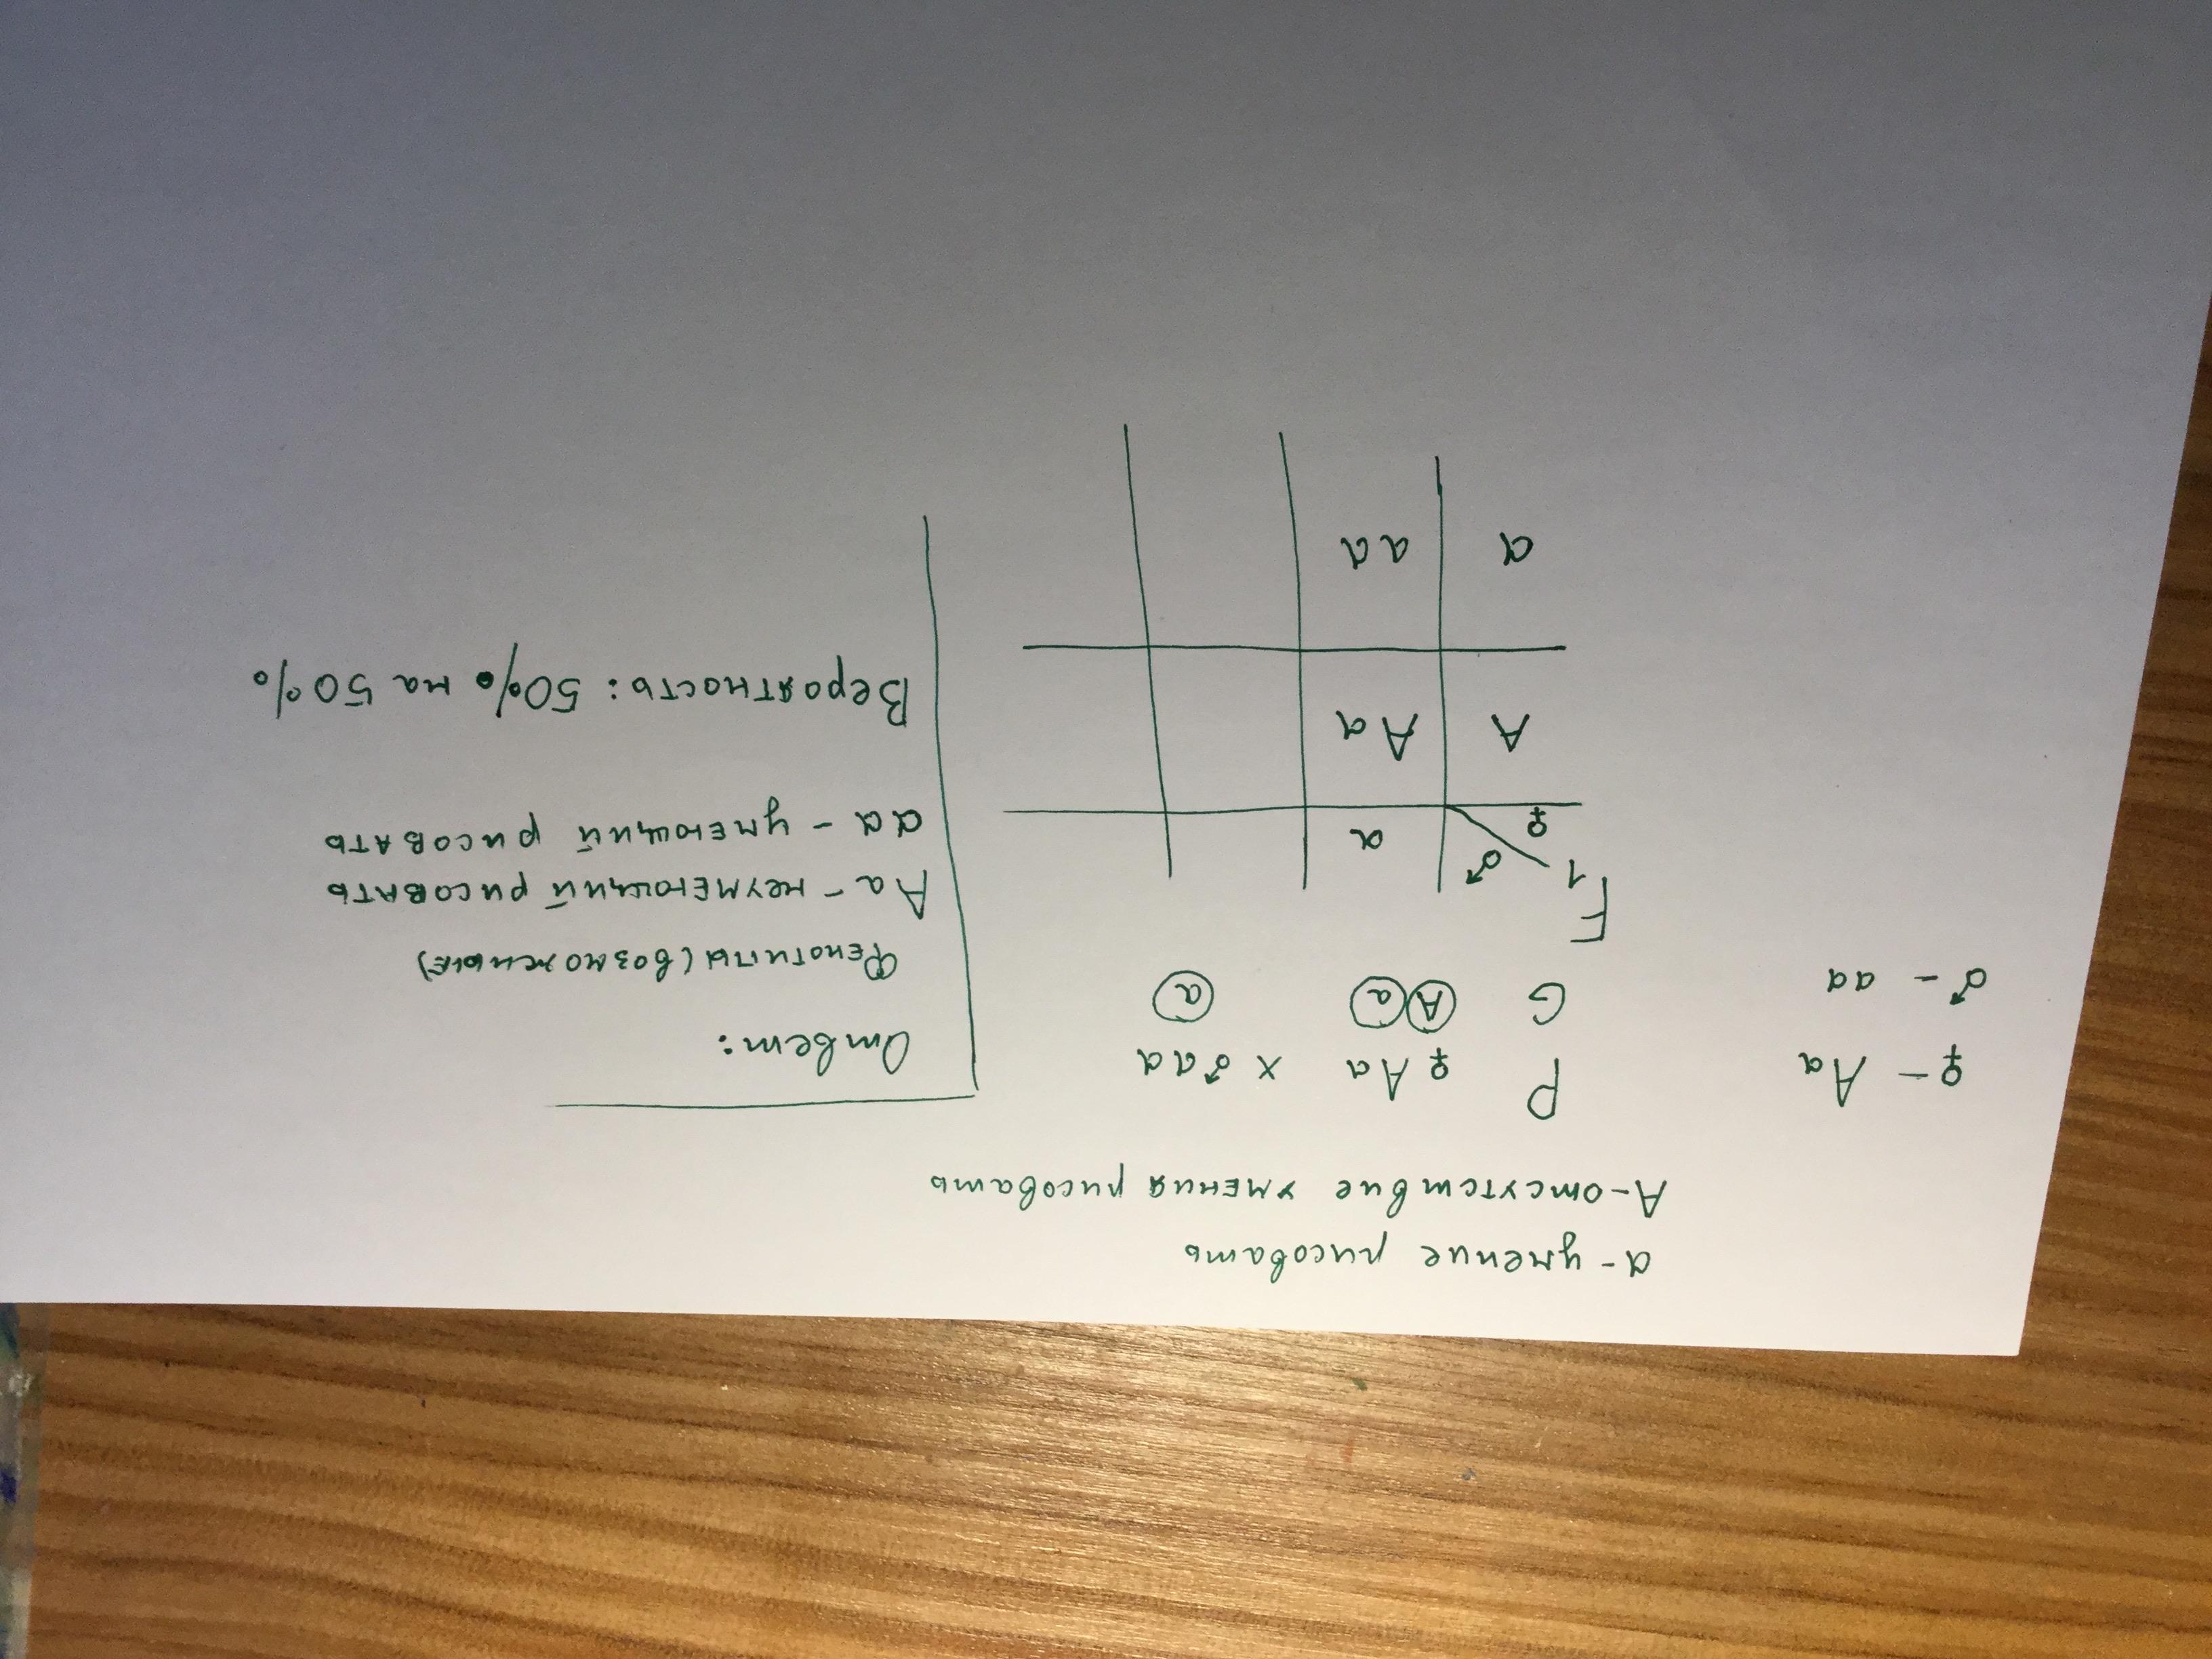 а - умение рисовать
А - отсутствие умения рисовать
♀ - Аа
♂ - аа
Р ♀ Аа х ♂ аа
G А а а
F1
♂ а
♀
А Аа
а аа
Ответ:
Фенотипы (возможные)
Аа - неумеющий рисовать
аа - умеющий рисовать
Вероятность: 50% на 50%